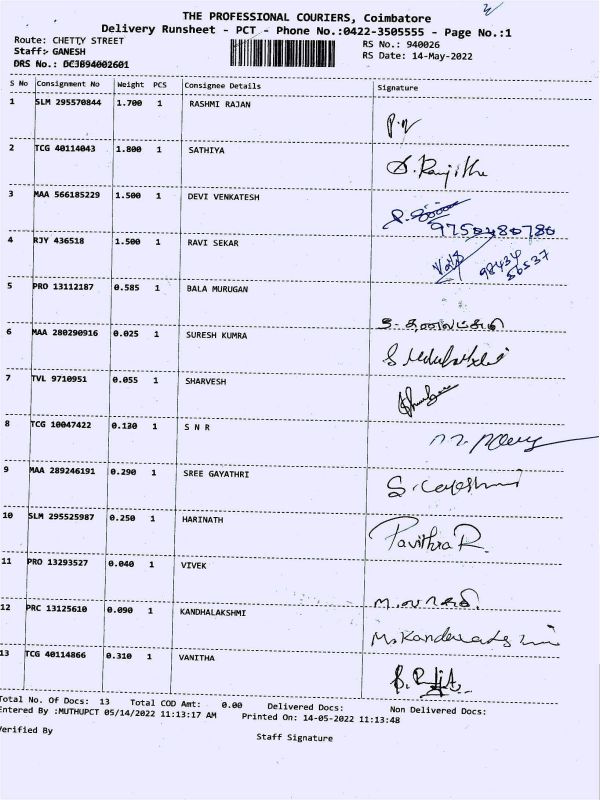 THE PROFESSIONAL COURIERS, Coimbatore
Delivery Runsheet - PCT - Phone No.:0422-3505555 - Page No.:1
Route: CHETTY STREET RS No.: 940026
Staff: GANESH RS Date: 14-May-2022
DRS No.: DCJB94002601
S No Consignment No Weight PCS Consignee Details Signature
1 SLM 295570844 1.700 1 RASHMI RAJAN
2 TCG 40114043 1.800 1 SATHIYA
3 MAA 566185229 1.500 1 DEVI VENKATESH
9750480780
4 RJY 436518 1.500 1 RAVI SEKAR
98434
56537
5 PRO 13112187 0.585 1 BALA MURUGAN
6 MAA 280290916 0.025 1 SURESH KUMRA
7 TVL 9710951 0.055 1 SHARVESH
8 TCG 10047422 0.130 1 S N R
9 MAA 289246191 0.290 1 SREE GAYATHRI
10 SLM 295525987 0.250 1 HARINATH
Pavithra R.
11 PRO 13293527 0.040 1 VIVEK
12 PRC 13125610 0.090 1 KANDHALAKSHMI
13 TCG 40114866 0.310 1 VANITHA
Total No. Of Docs: 13 Total COD Amt: 0.00 Delivered Docs: Non Delivered Docs:
Entered By :MUTHUPCT 05/14/2022 11:13:17 AM Printed On: 14-05-2022 11:13:48
Verified By Staff Signature